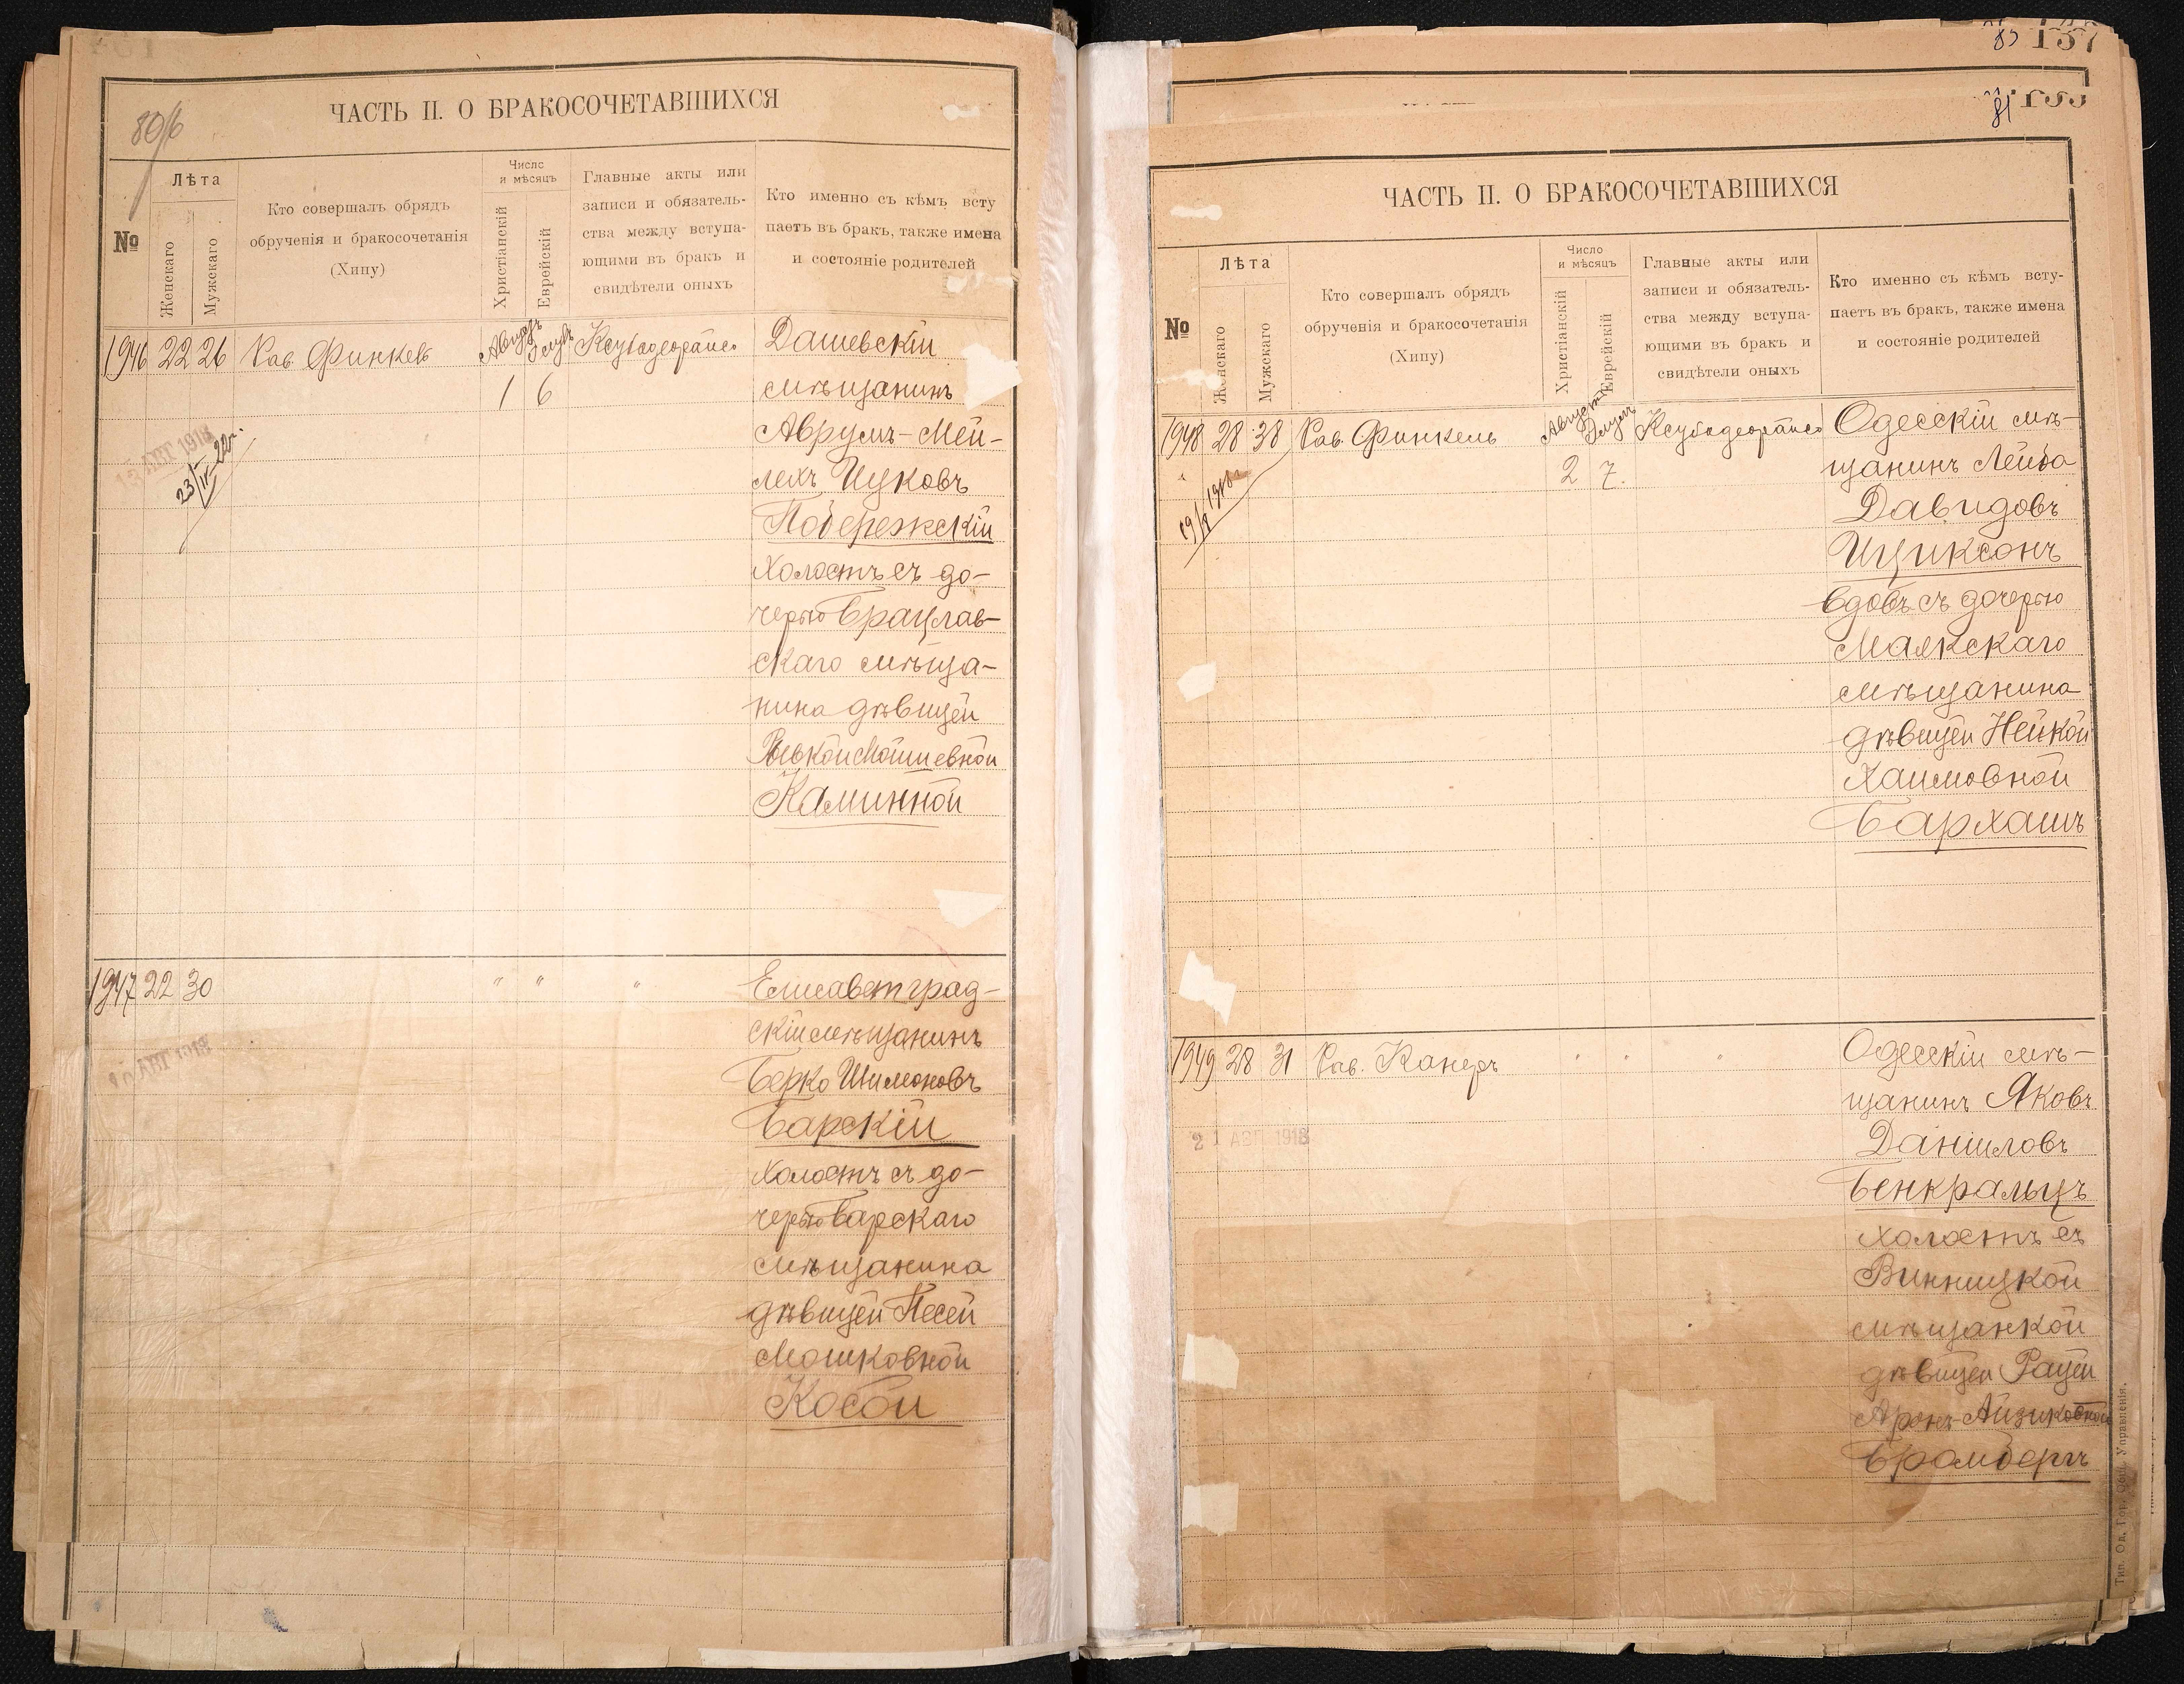 80/б
ЧАСТЬ II. О БРАКОСОЧЕТАВШИХСЯ
№
Лѣта
Женскаго
Мужскаго
Кто совершалъ обрядъ
обрученія и бракосочетанія
(Хипу)
Число
и мѣсяцъ
Христіанскій
Еврейскій
Главные акты или
записи и обязатель-
ства между вступа-
ющими въ бракъ и
свидѣтели оныхъ
Кто именно съ кѣмъ всту
паетъ въ бракъ, также имена
и состояніе родителей
1946 22 26 Рав. Финкель Августъ Элулъ
1 6
13 АВГ 1918
Дашевскій
мѣщанинъ
Аврумъ-Мей-
лехъ Ицковъ
Побережскій
холостъ съ до-
черью Брацлав-
скаго мѣща-
нина дѣвицей
Мошневной
Каминной
1947 22 30 " " "
АВГ 1918
Елисаветград-
скій мѣщанинъ
Берко Шимоновъ
Барскій
холостъ съ до-
черью Барскаго
мѣщанина
дѣвицей Песей
Мошковной
Косой
137
85
81
ЧАСТЬ II. О БРАКОСОЧЕТАВШИХСЯ
№
Лѣта
Женскаго
Мужскаго
Кто совершалъ обрядъ
обрученія и бракосочетанія
(Хипу)
Число
и мѣсяцъ
Христіанскій
Еврейскій
Главные акты или
записи и обязатель-
ства между вступа-
ющими въ бракъ и
свидѣтели оныхъ
Кто именно съ кѣмъ всту-
паетъ въ бракъ, также имена
и состояніе родителей
1948 28 38 Рав. Финкель Августъ Элулъ
2 7.
Одесскій мѣ-
щанинъ Лейба
Давидовъ
Ициксонъ
вдовъ съ дочерью
Маякскаго
мѣщанина
дѣвицей Нейкой
Хаимовной
Бархашъ
1949 28 31 Рав. Канеръ " " "
21 АВГ 1918
Одесскій мѣ-
щанинъ Яковъ
Даніиловъ
Бенкральцъ
холостъ съ
Винницкой
мѣщанкой
дѣвицей Рацей
Аронъ-Айзиковной
Бромбергъ
Тип. Од. Гор. Общ. Управленія.